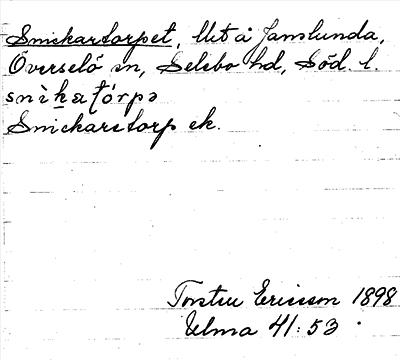 Snickartorpet, Ut å Janslunda,
Överselö sn, Selebo hd, Söd. l.
snìkatórpə
Snickaretorp ek.
Torsten Ericsson 1898
Ulma 41:53